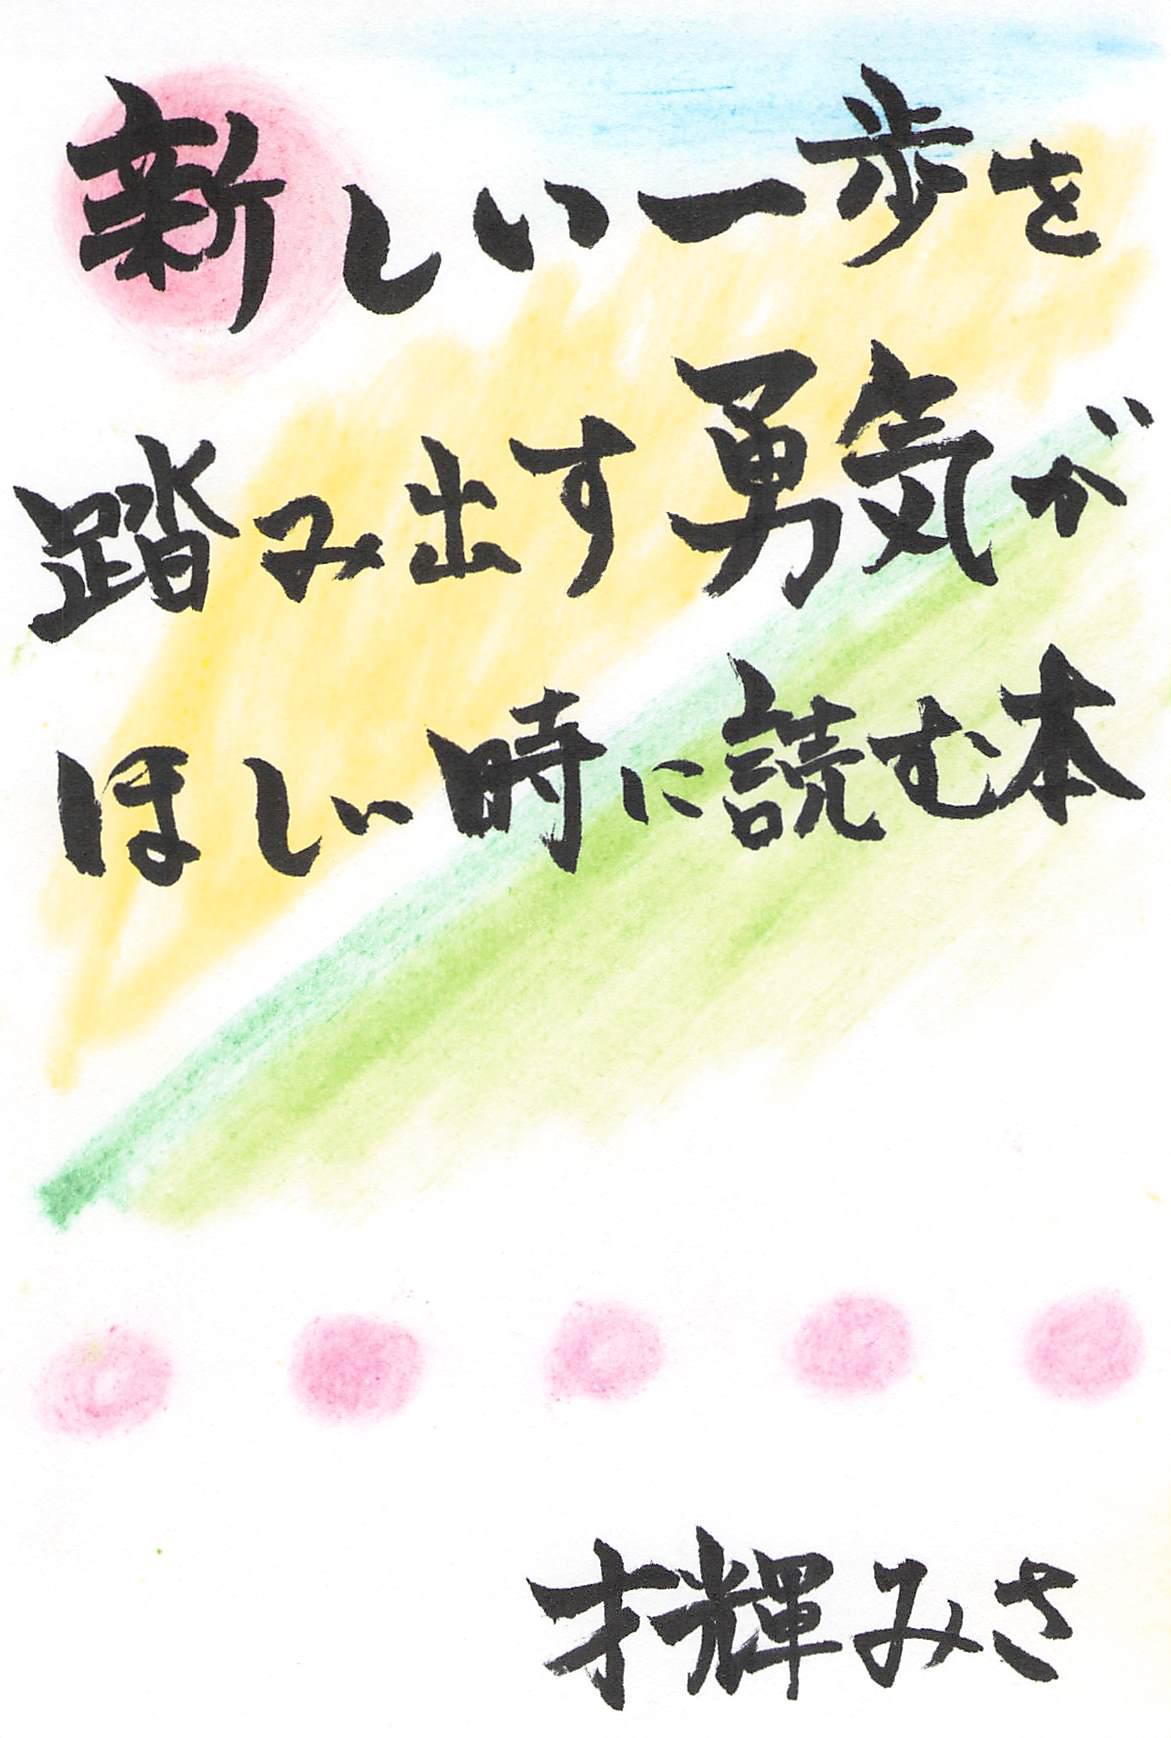 新しい一歩を
踏み出す勇気が
ほしい時に読む本
才輝みさ